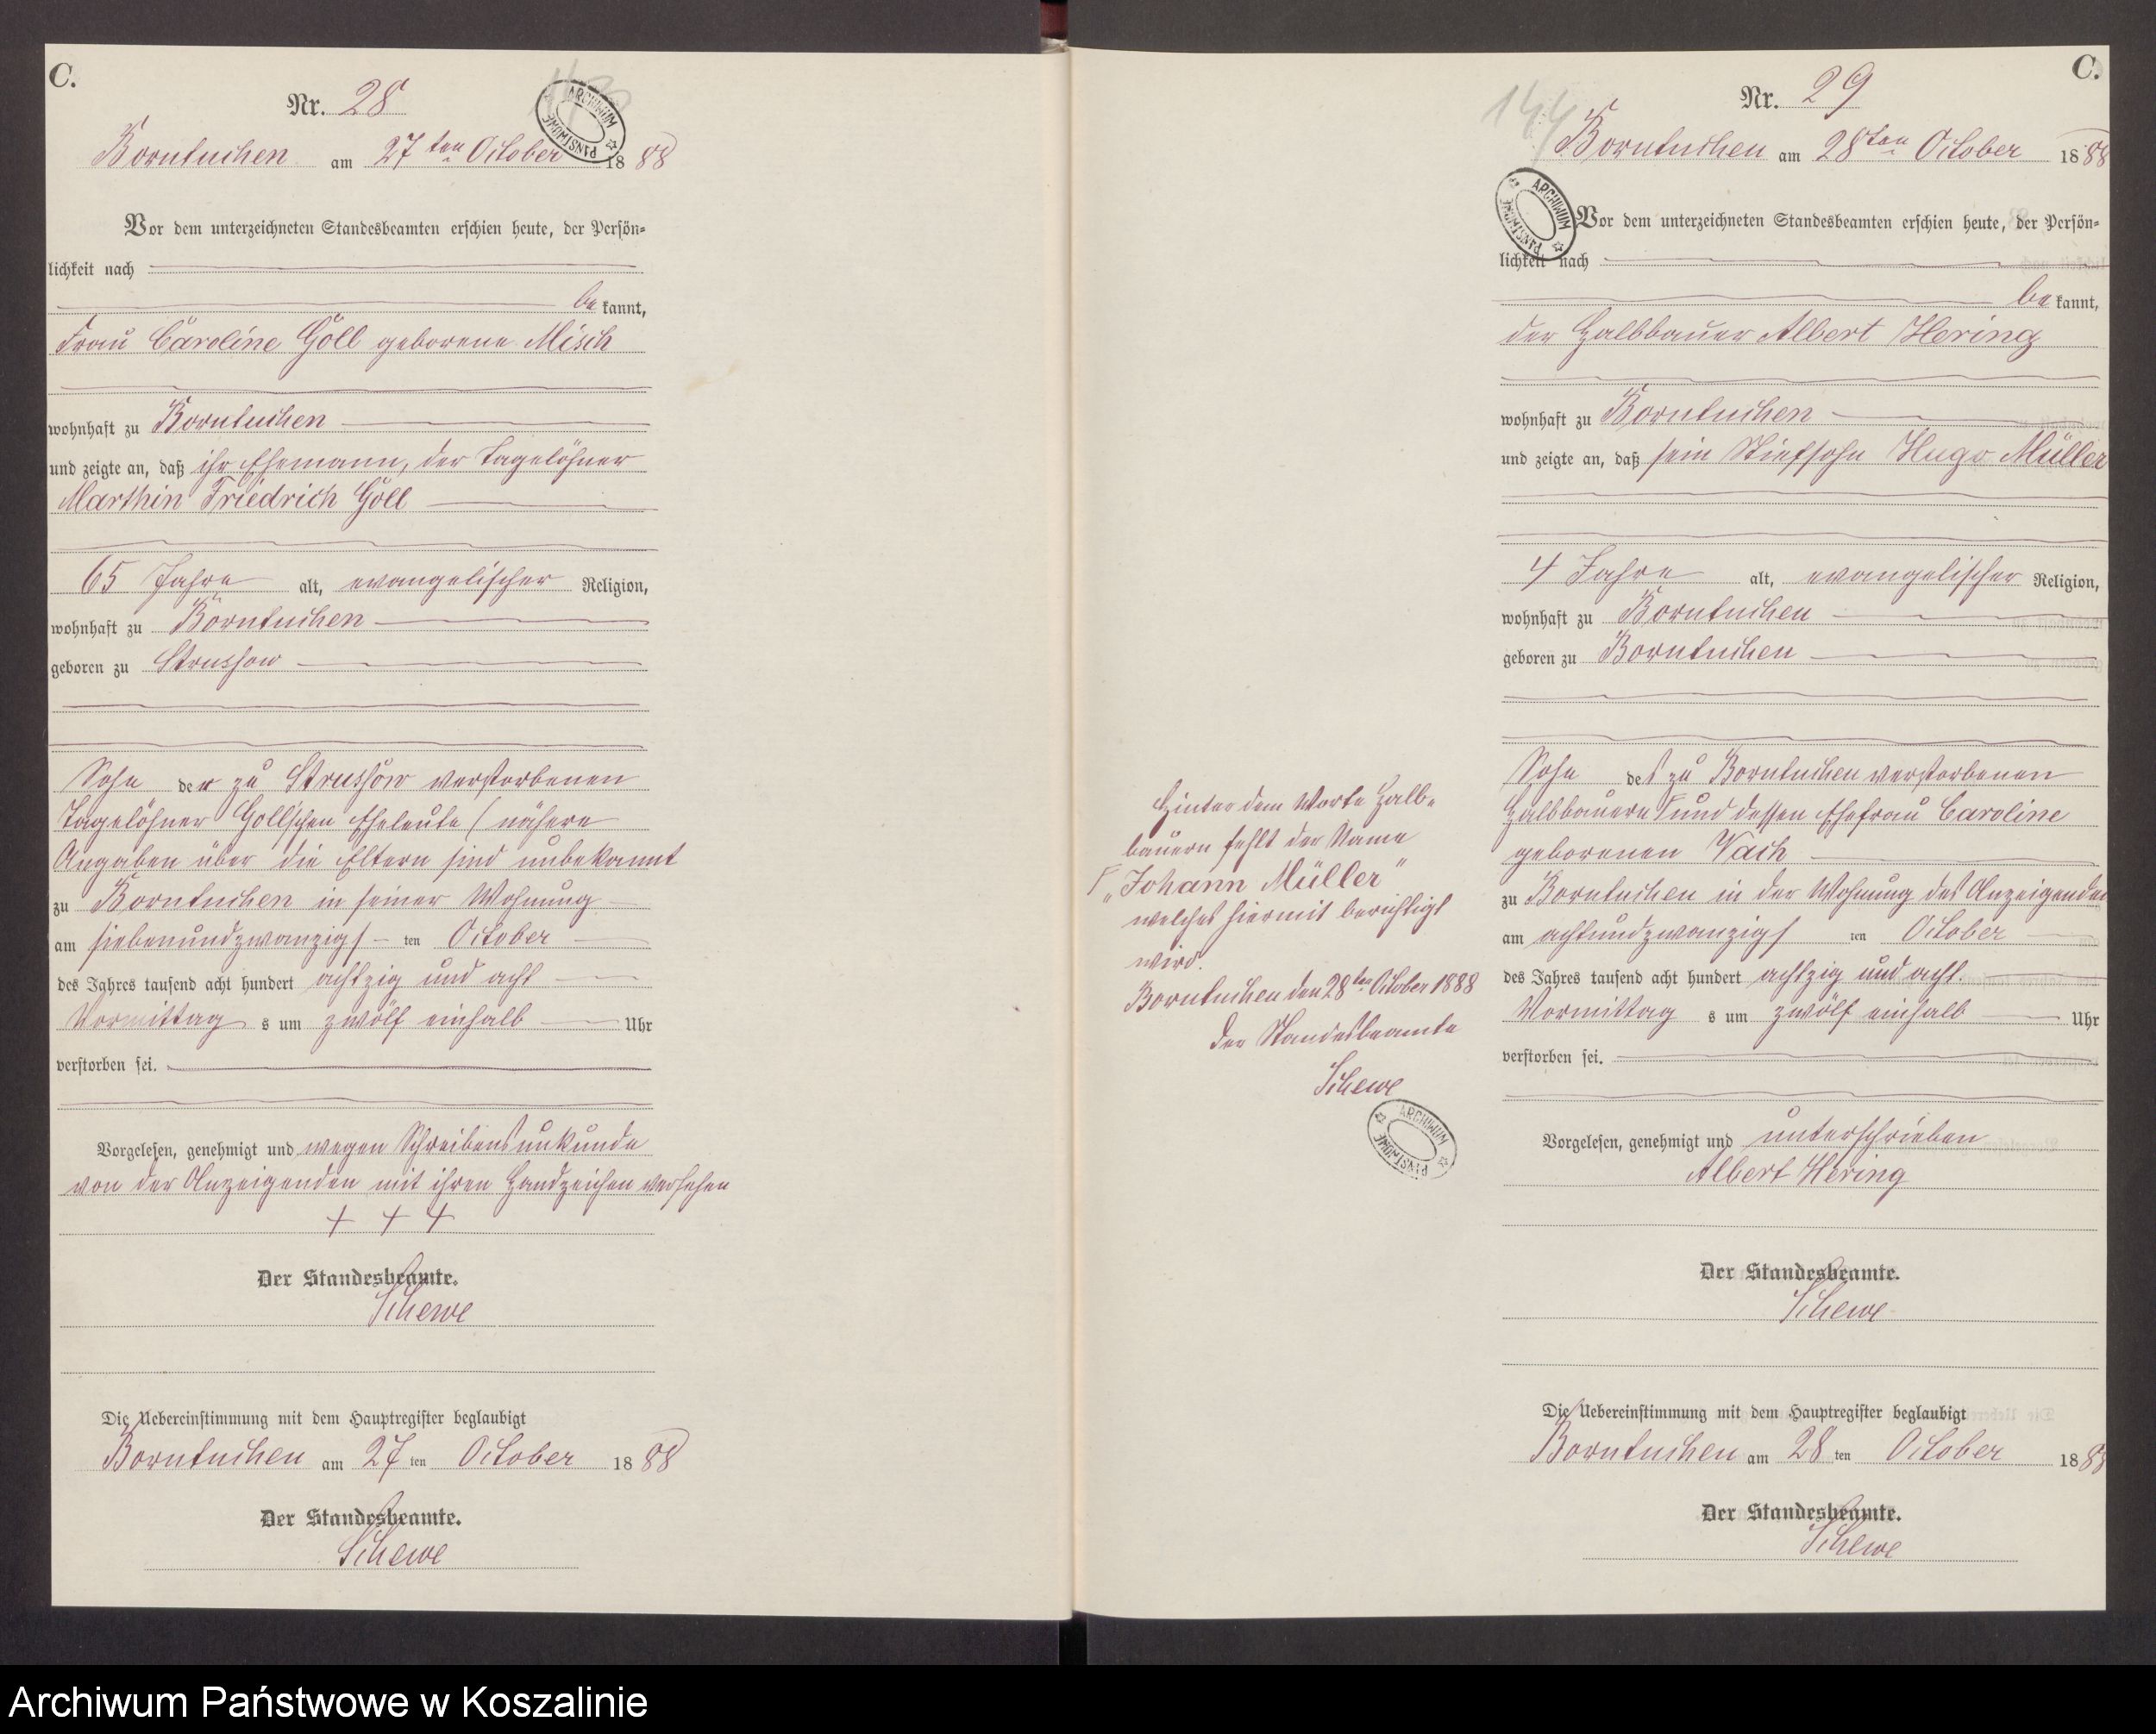 C.
Nr. 28
ARCHIWUM PAŃSTWOWE
Borntuchen am 27ten October 1888
Vor dem unterzeichneten Standesbeamten erschien heute, der Persön-
lichkeit nach
bekannt,
Frau Caroline Göll geborene Misch
wohnhaft zu Borntuchen
und zeigte an, daß ihr Ehemann, der Tagelöhner
Marthin Friedrich Göll
65 Jahre alt, evangelischer Religion,
wohnhaft zu Borntuchen
geboren zu Strussow
Sohn der zu Strussow verstorbenen
Tagelöhner Göll'schen Eheleute (nähere
Angaben über die Eltern sind unbekannt
zu Borntuchen in seiner Wohnung
am siebenundzwanzigs ten October
des Jahres tausend acht hundert achtzig und acht
Vormittags um zwölf einhalb Uhr
verstorben sei.
Vorgelesen, genehmigt und wegen Schreibensunkunde
von der Anzeigenden mit ihren Handzeichen versehen
+ + +
Der Standesbeamte.
Schewe
Die Uebereinstimmung mit dem Hauptregister beglaubigt
Borntuchen am 27 ten October 1888
Der Standesbeamte.
Schewe
C.
144
Nr. 29
Borntuchen am 28ten October 1888
ARCHIWUM PAŃSTWOWE
Vor dem unterzeichneten Standesbeamten erschien heute, der Persön-
lichkeit nach
bekannt,
der Halbbauer Albert Hering
wohnhaft zu Borntuchen
und zeigte an, daß sein Stiefsohn Hugo Müller
4 Jahre alt, evangelischer Religion,
wohnhaft zu Borntuchen
geboren zu Borntuchen
Sohn des zu Borntuchen verstorbenen
Halbbauern Γ und dessen Ehefrau Caroline
geborenen Vach
zu Borntuchen in der Wohnung des Anzeigenden
am achtundzwanzigs ten October
des Jahres tausend acht hundert achtzig und acht.
Vormittags um zwölf einhalb Uhr
verstorben sei.
Vorgelesen, genehmigt und unterschrieben
Albert Hering
Der Standesbeamte.
Schewe
Die Uebereinstimmung mit dem Hauptregister beglaubigt
Borntuchen am 28 ten October 1888
Der Standesbeamte.
Schewe
Hinter dem Worte Halb-
bauern fehlt der Name
Γ „Johann Müller"
welches hiermit berichtigt
wird.
Borntuchen den 28ten October 1888
Der Standesbeamte
Schewe
ARCHIWUM PAŃSTWOWE
Archiwum Państwowe w Koszalinie